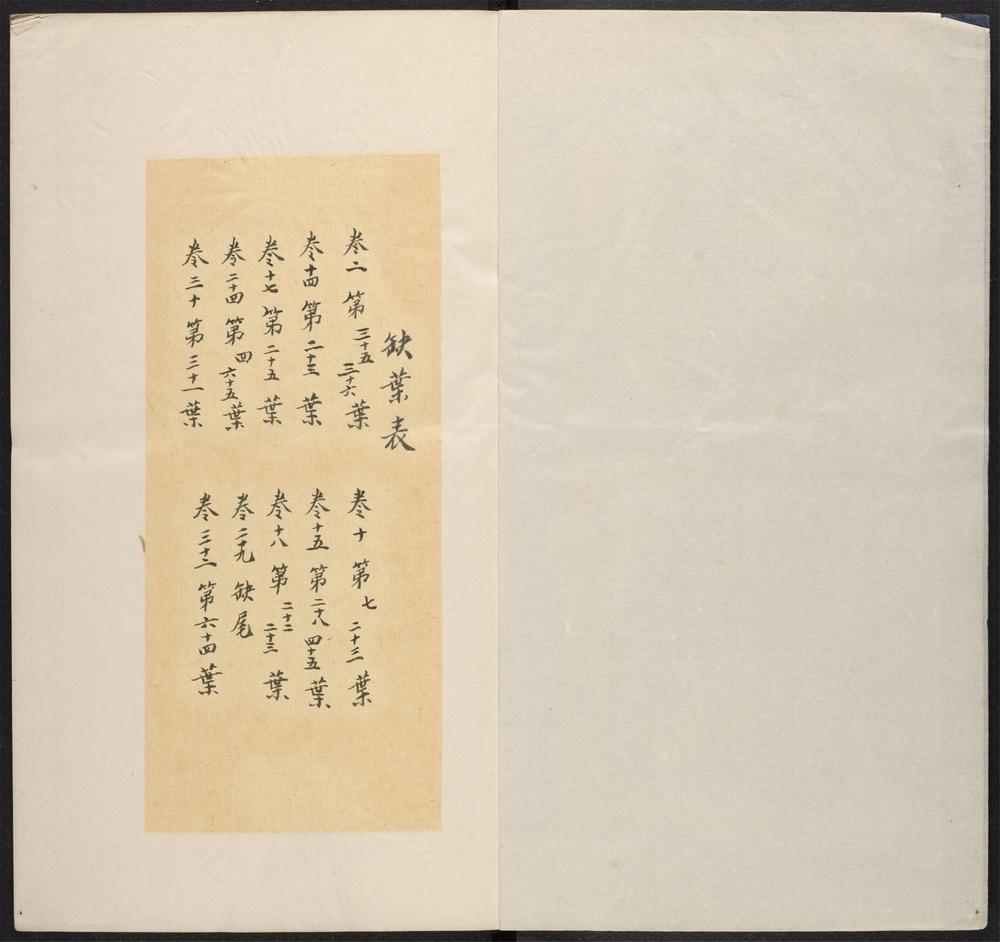 缺葉表
卷二 第三十五 三十六葉
卷十 第七 二十三葉
卷十四 第二十三葉
卷十五 第二十八 四十五葉
卷十七 第二十五葉
卷十八 第二十二 二十三葉
卷二十四 第四 六十五葉
卷二十九 缺尾
卷三十 第三十一葉
卷三十二 第六十四葉